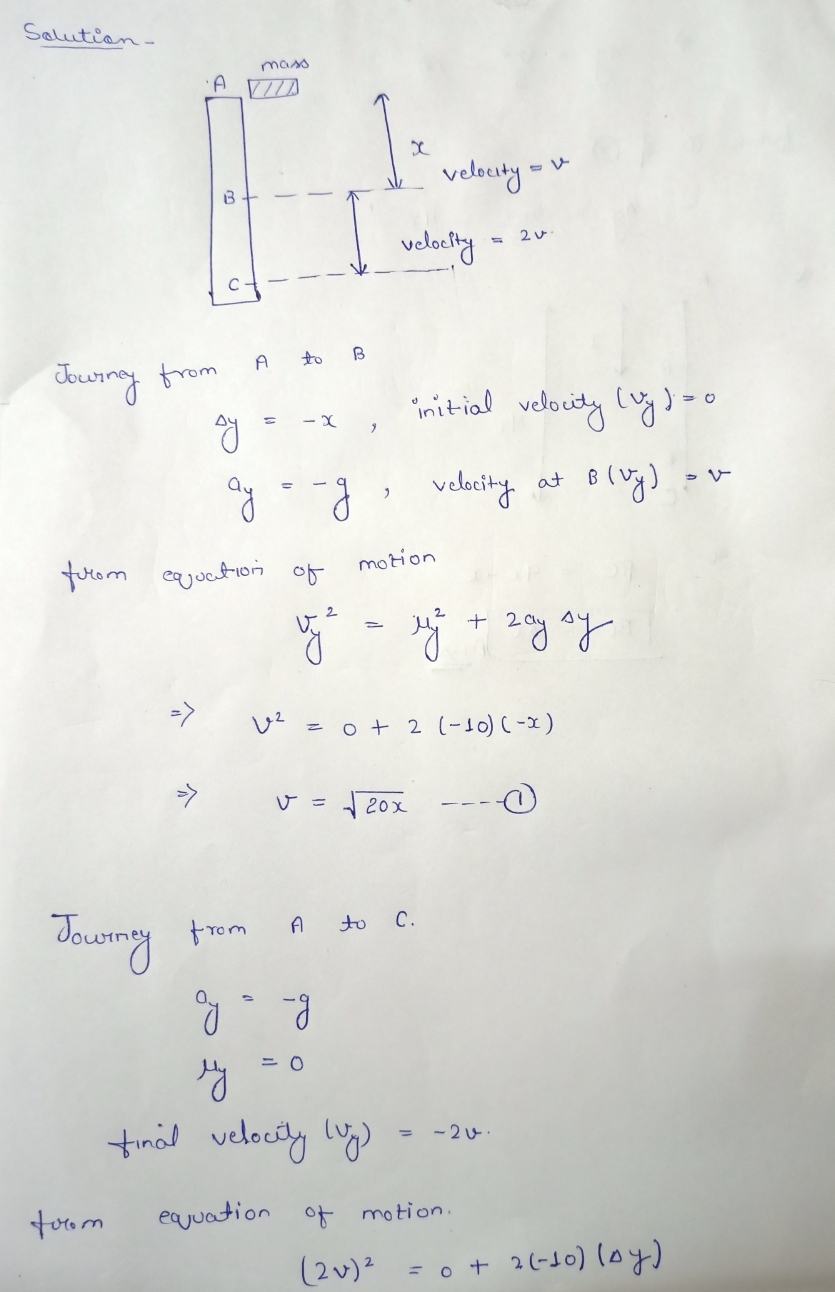 Solution -
mass
A
x
velocity = v
B
velocity = 2v.
C
Journey from A to B
Δy = -x , initial velocity (vy) = 0
ay = -g , velocity at B (vy) = v
from equation of motion
vy² = μy² + 2ay Δy
=> v² = 0 + 2 (-10) (-x)
=> v = √20x ----①
Journey from A to C.
ay = -g
μy = 0
final velocity (vy) = -2v.
from equation of motion.
(2v)² = 0 + 2(-10) (Δy)